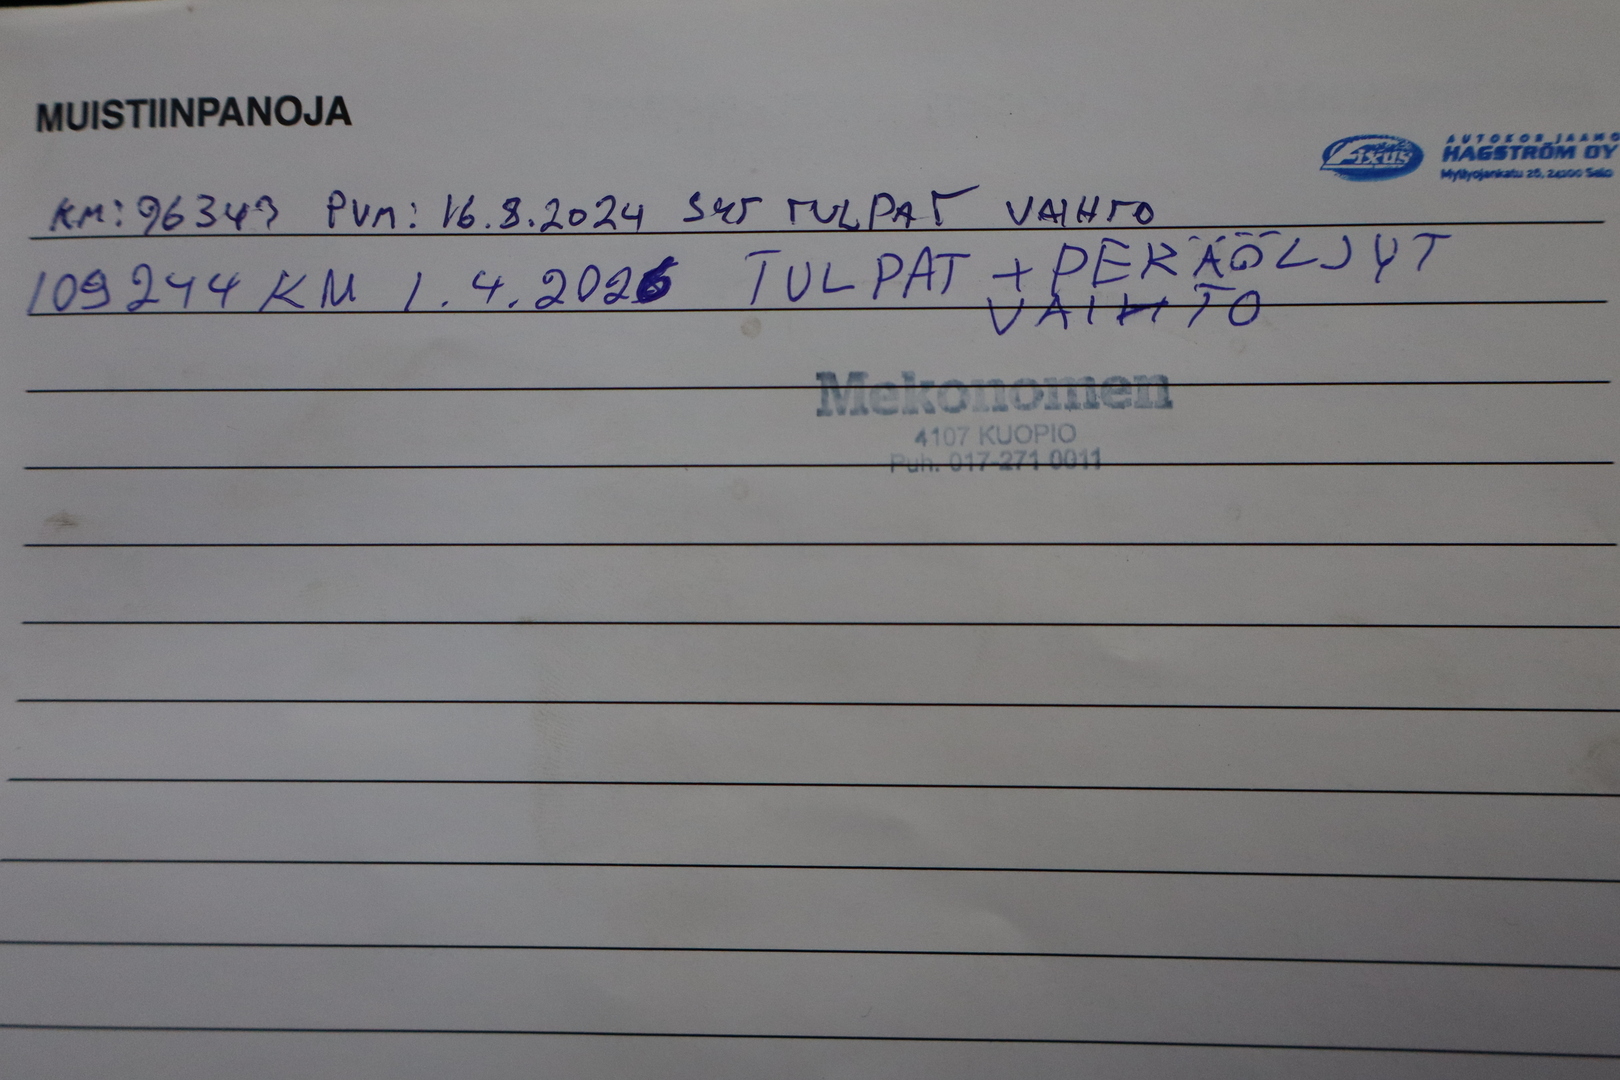 MUISTIINPANOJA
Fixus
AUTOKORJAAMO
HAGSTRÖM OY
Myllyojankatu 25, 24100 Salo
KM: 96343 PVM: 16.8.2024 SYT TULPAT VAIHTO
109244 KM 1.4.2026 TULPAT + PERÄÖLJYT
VAIHTO
Mekonomen
4107 KUOPIO
Puh. 017-271 0011